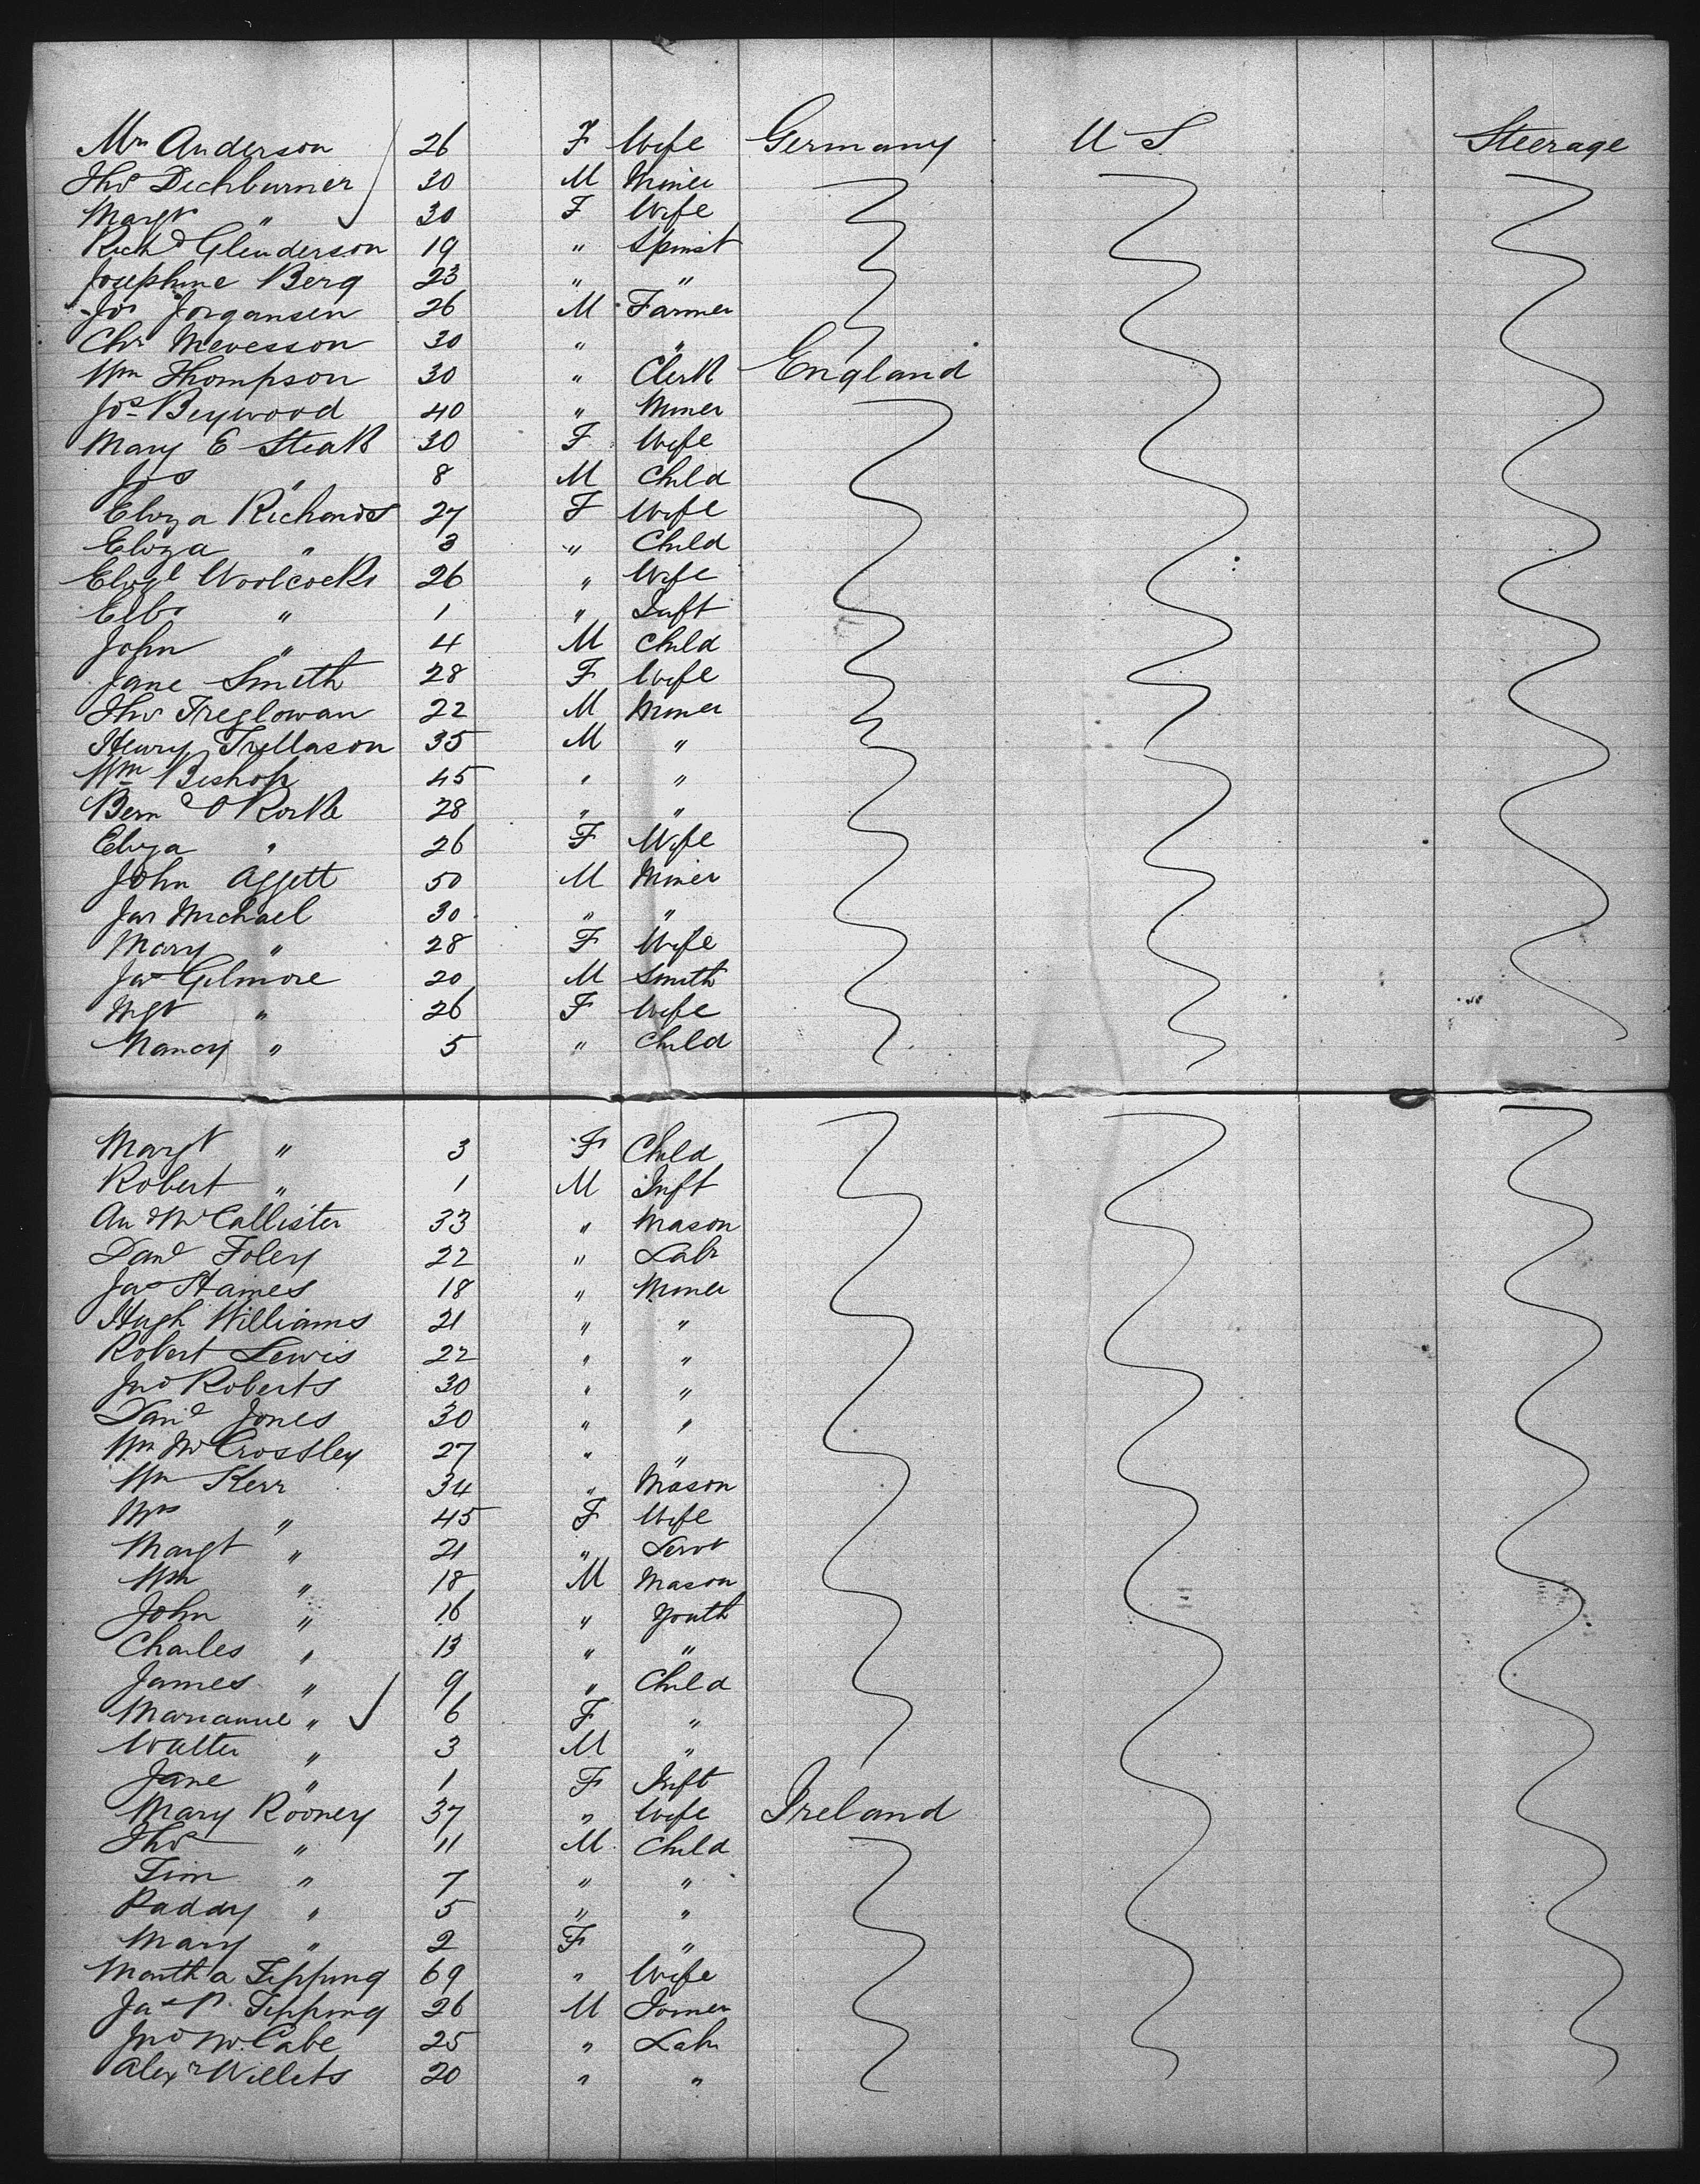 Mrs Anderson 26 F Wife Germany U S Steerage
Thos Dechburner 30 M Miner
Margt " 30 F Wife
Richd Glenderson 19 " Spinst
Josephine Berg 23 " "
Jos Jorgansen 26 M Farmer
Chr Mevesson 30 " "
Wm Thompson 30 " Clerk England
Jos Beywood 40 " Miner
Mary E Steak 30 F Wife
Jos " 8 M Child
Eliza Richards 27 F Wife
Eliza " 3 " Child
Elizh Woolcocks 26 " Wife
Elbr " 1 " Inft
John " 4 M Child
Jane Smith 28 F Wife
Thos Treglowan 22 M Miner
Henry Trellason 35 M "
Wm Bishop 45 " "
Bernd O Rorke 28 " "
Eliza " 26 F Wife
John Aggett 50 M Miner
Jas Michael 30 " "
Mary " 28 F Wife
Jas Gilmore 20 M Smith
Mgt " 26 F Wife
Nancy " 5 " Child
Margt " 3 F Child
Robert " 1 M Inft
And McCallister 33 " Mason
Danl Foley 22 " Labr
Jas Hames 18 " Miner
Hugh Williams 21 " "
Robert Lewis 22 " "
Jno Roberts 30 " "
David Jones 30 " "
Wm McCrossley 27 " "
Wm Kerr 34 " Mason
Mrs " 45 F Wife
Margt " 21 " Servt
Wm " 18 M Mason
John " 16 " Youth
Charles " 13 " "
James " 9 " Child
Marianne " 6 F "
Walter " 3 M "
Jane " 1 F Inft
Mary Rooney 37 " Wife Ireland
Thos " 11 M Child
Tim " 7 " "
Paddy " 5 " "
Mary " 2 F "
Martha Tipping 69 " Wife
Jas P. Tipping 26 M Joiner
Jno McCabe 25 " Labr
Alexr Willets 20 " "